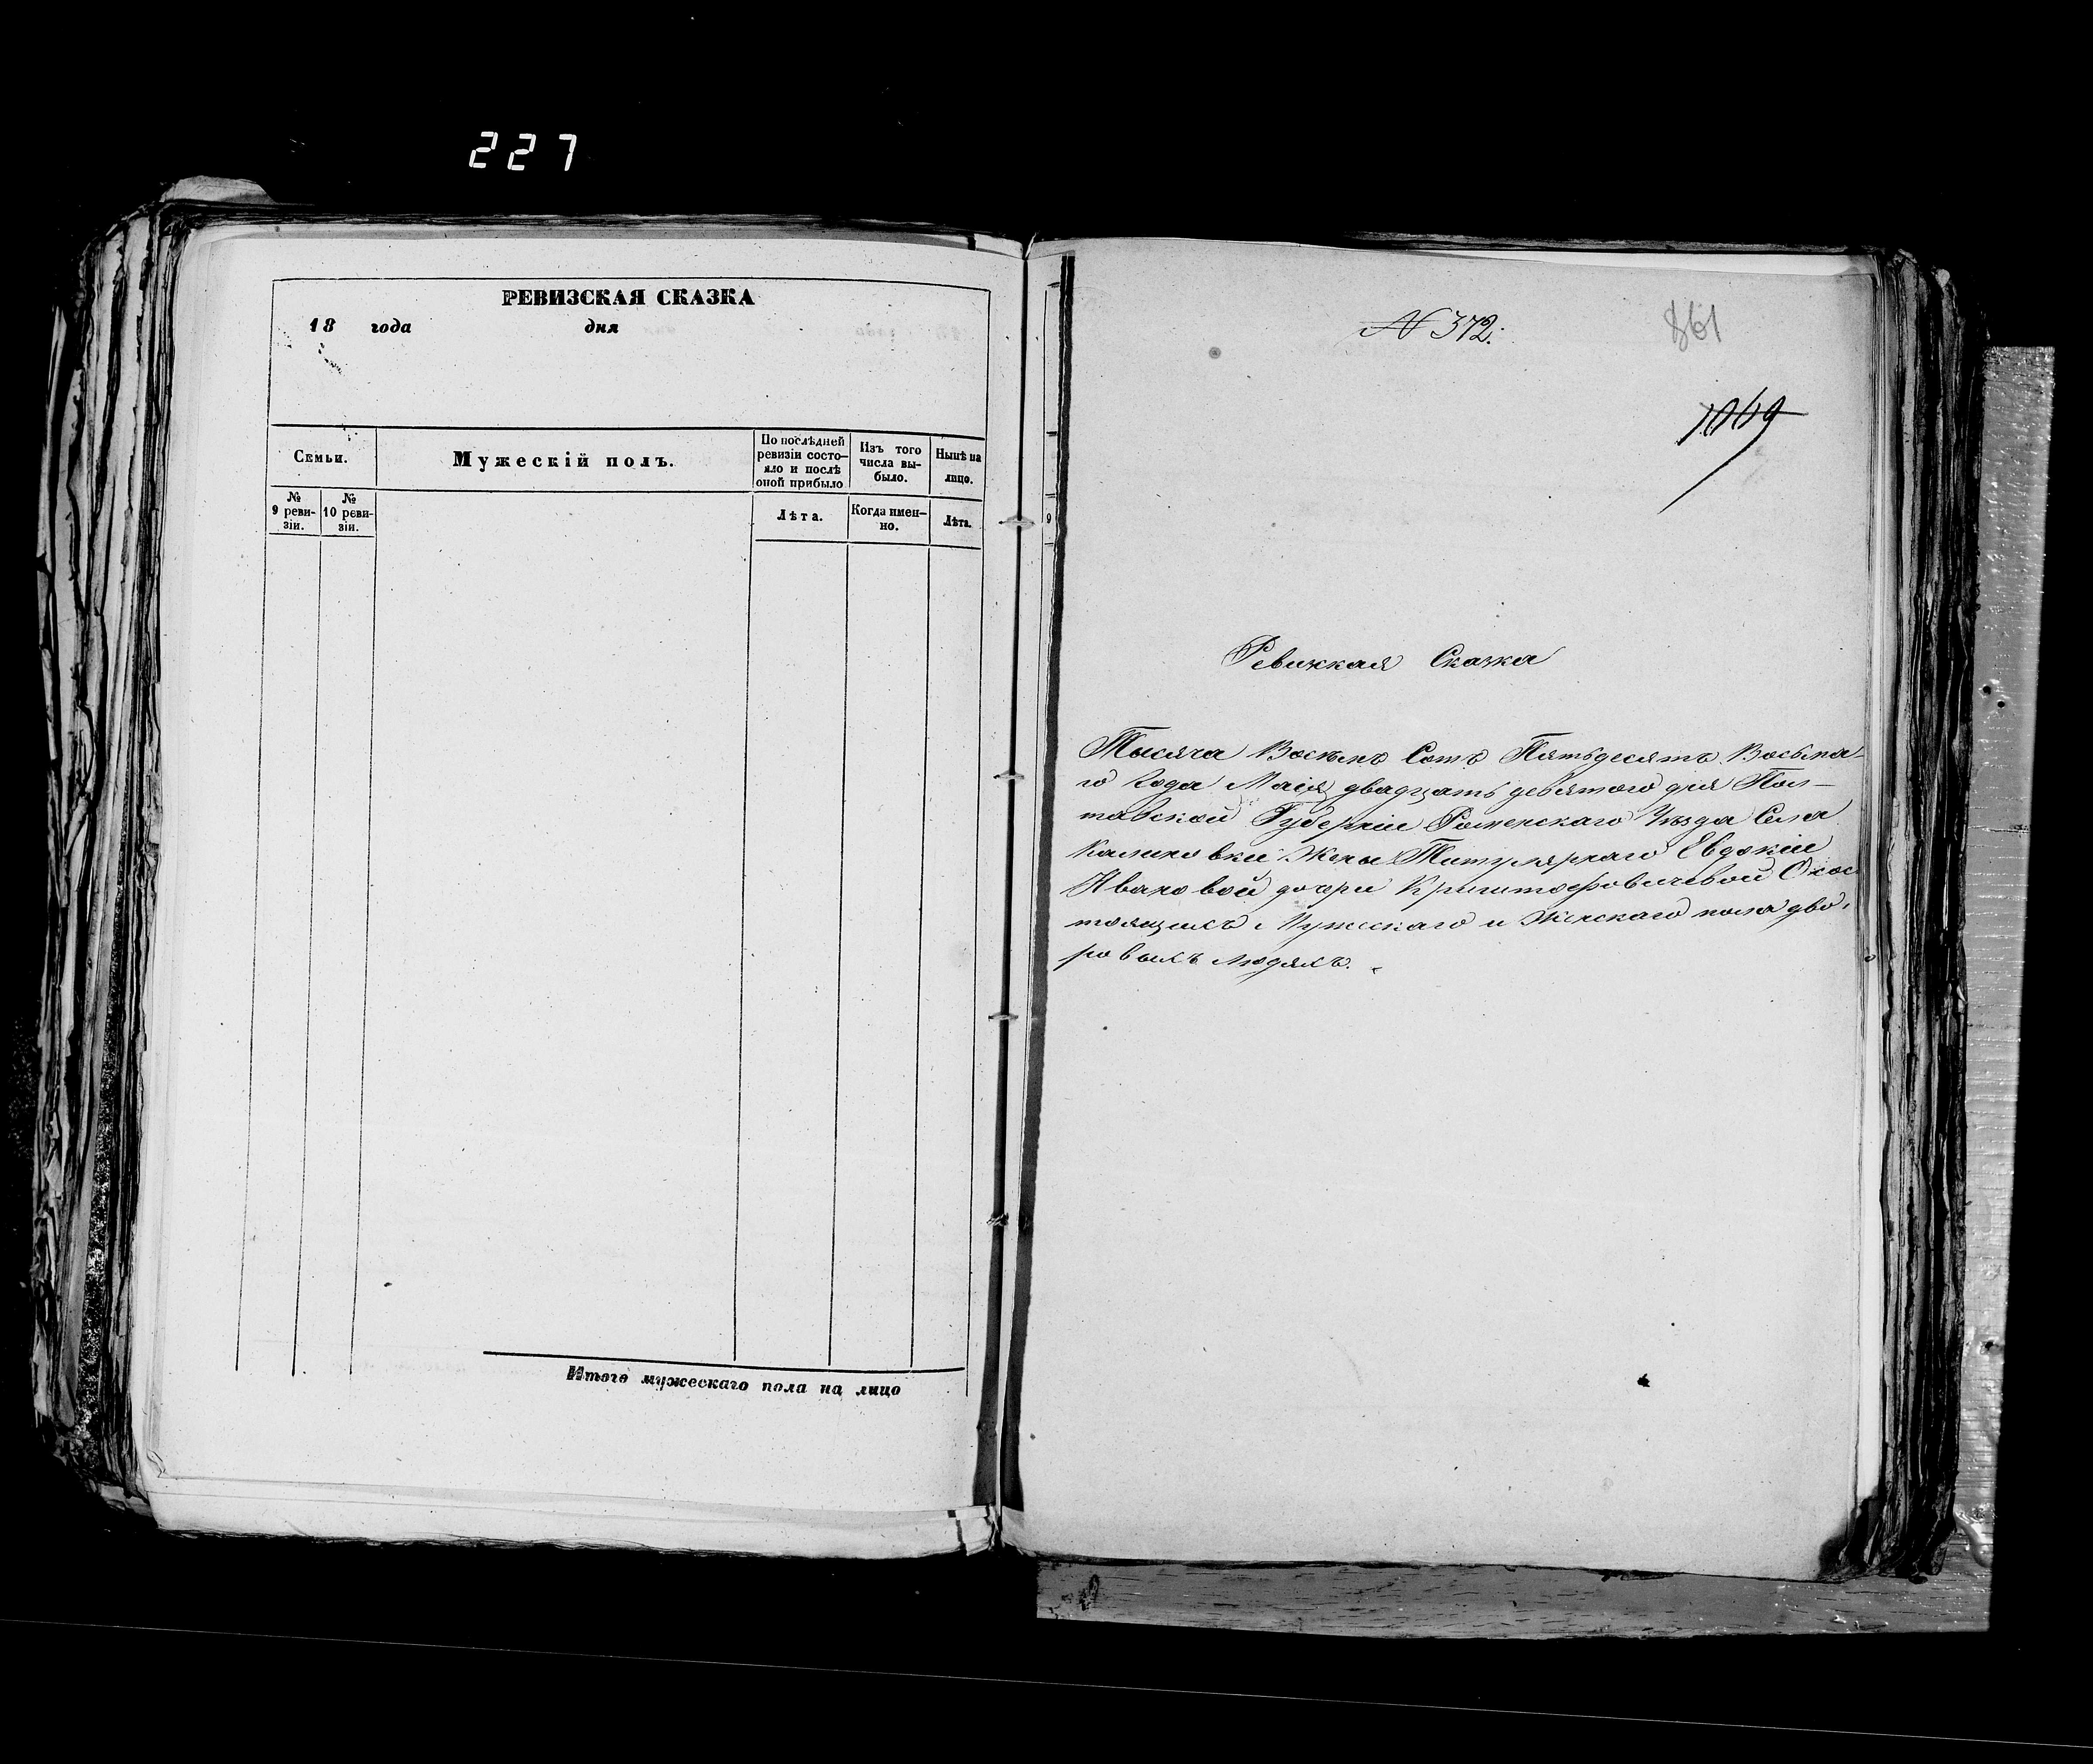 227
РЕВИЗСКАЯ СКАЗКА
18 года дня
Семьи.
Мужескій полъ.
По послѣдней
ревизіи состо-
яло и послѣ
оной прибыло
Изъ того
числа вы-
было.
Нынѣ на
лицо.
№
9 реви-
зіи.
№
10 реви-
зіи.
Лѣта.
Когда имен-
но.
Лѣта.
Итого мужескаго пола на лицо
9
№ 372.
861
1069
Ревизкая Сказка
Тысяча Восемъ Сотъ Пятьдесятъ Восьма-
го Года Маія двадцать девятого дня Пол-
тавской Губерніи Роменскаго Уѣзда Села
Калиновки Жены Титулярнаго Евдокіи
Ивановой дочери Криштофовичевой О сос
тоящихъ Мужескаго и Женскаго пола дво-
ровыхъ людяхъ.